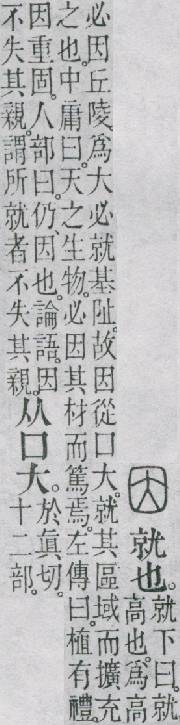 就也。
就下曰。就
高也。爲高
必因丘陵。爲大必就基阯。故因從口大。就其區域而擴充
之也。中庸曰。天之生物。必因其材而篤焉。左傳曰。植有禮。
因重固。人部曰。仍因也。論語。因
不失其親。謂所就者不失其親。
从口大。
於眞切。
十二部。